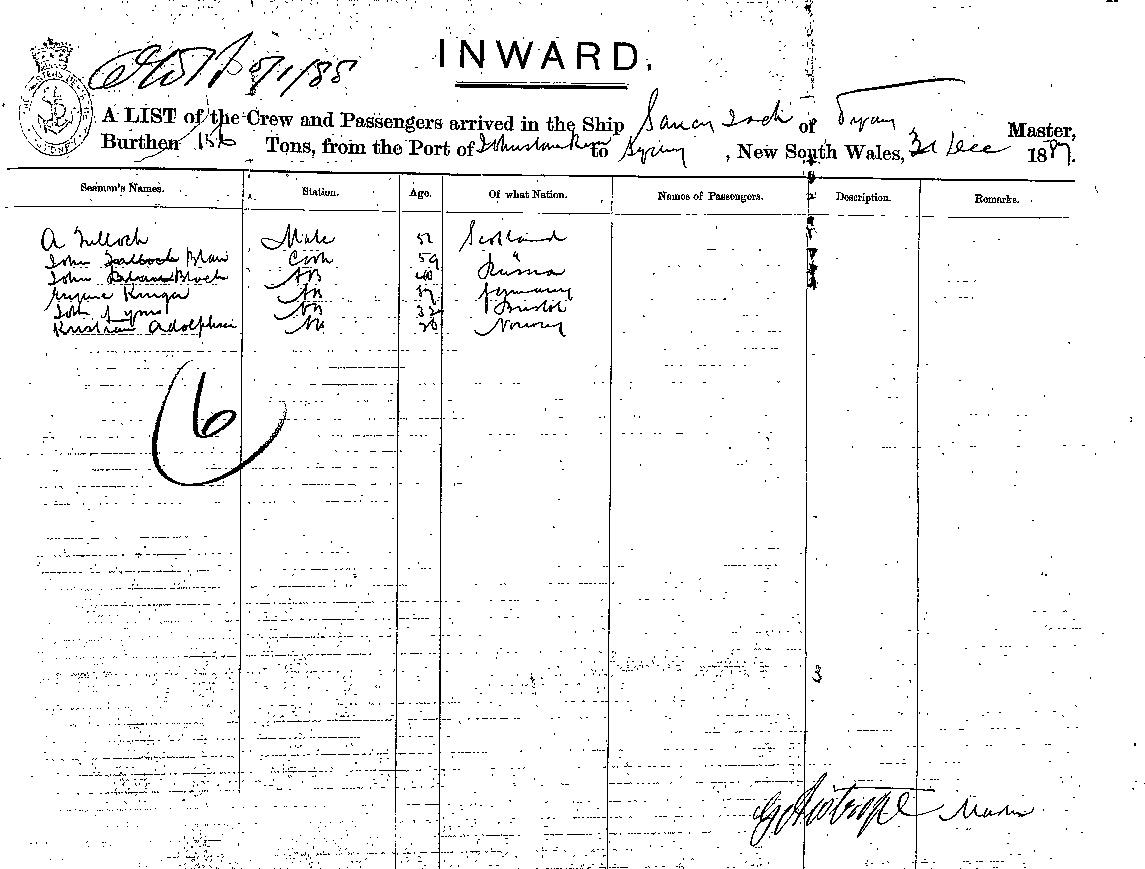 INWARD.
5/1/88
A LIST of the Crew and Passengers arrived in the Ship Saucy Jack of
Master,
Burthen 156 Tons, from the Port of Johnstone River to Sydney, New South Wales, 31 Dec 1887.
Seamen's Names. Station. Age. Of what Nation. Names of Passengers. Description. Remarks.
A Tulloch Mate 52 Scotland
John Blair Cook 59
John Block AB 40 Russia
Kruger AB 37 Germany
AB 32 Bristol
Kristian Adolphsen AB 28 Norway
6
3
Master